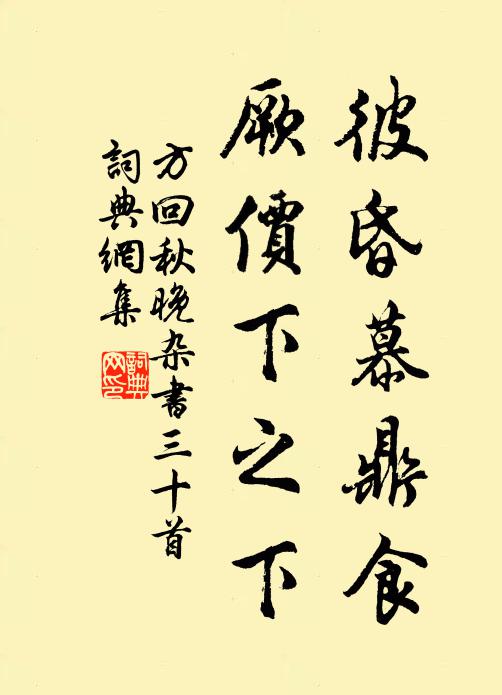 彼昏慕鼎食
厥價下之下
方回秋晚杂書三十首
詞典網集
詞典网印